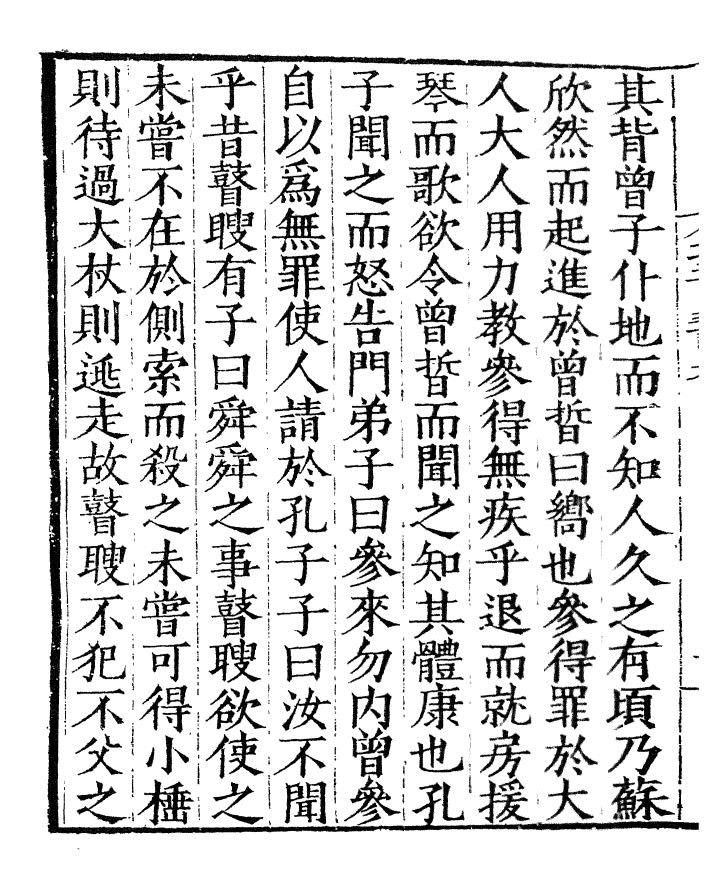 其背曾子仆地而不知人久之有頃乃蘇
欣然而起進於曾晳曰嚮也參得罪於大
人大人用力教參得無疾乎退而就房援
琴而歌欲令曾晳而聞之知其體康也孔
子聞之而怒告門弟子曰參來勿内曾參
自以爲無罪使人請於孔子子曰汝不聞
乎昔瞽瞍有子曰舜舜之事瞽瞍欲使之
未嘗不在於側索而殺之未嘗可得小棰
則待過大杖則逃走故瞽瞍不犯不父之